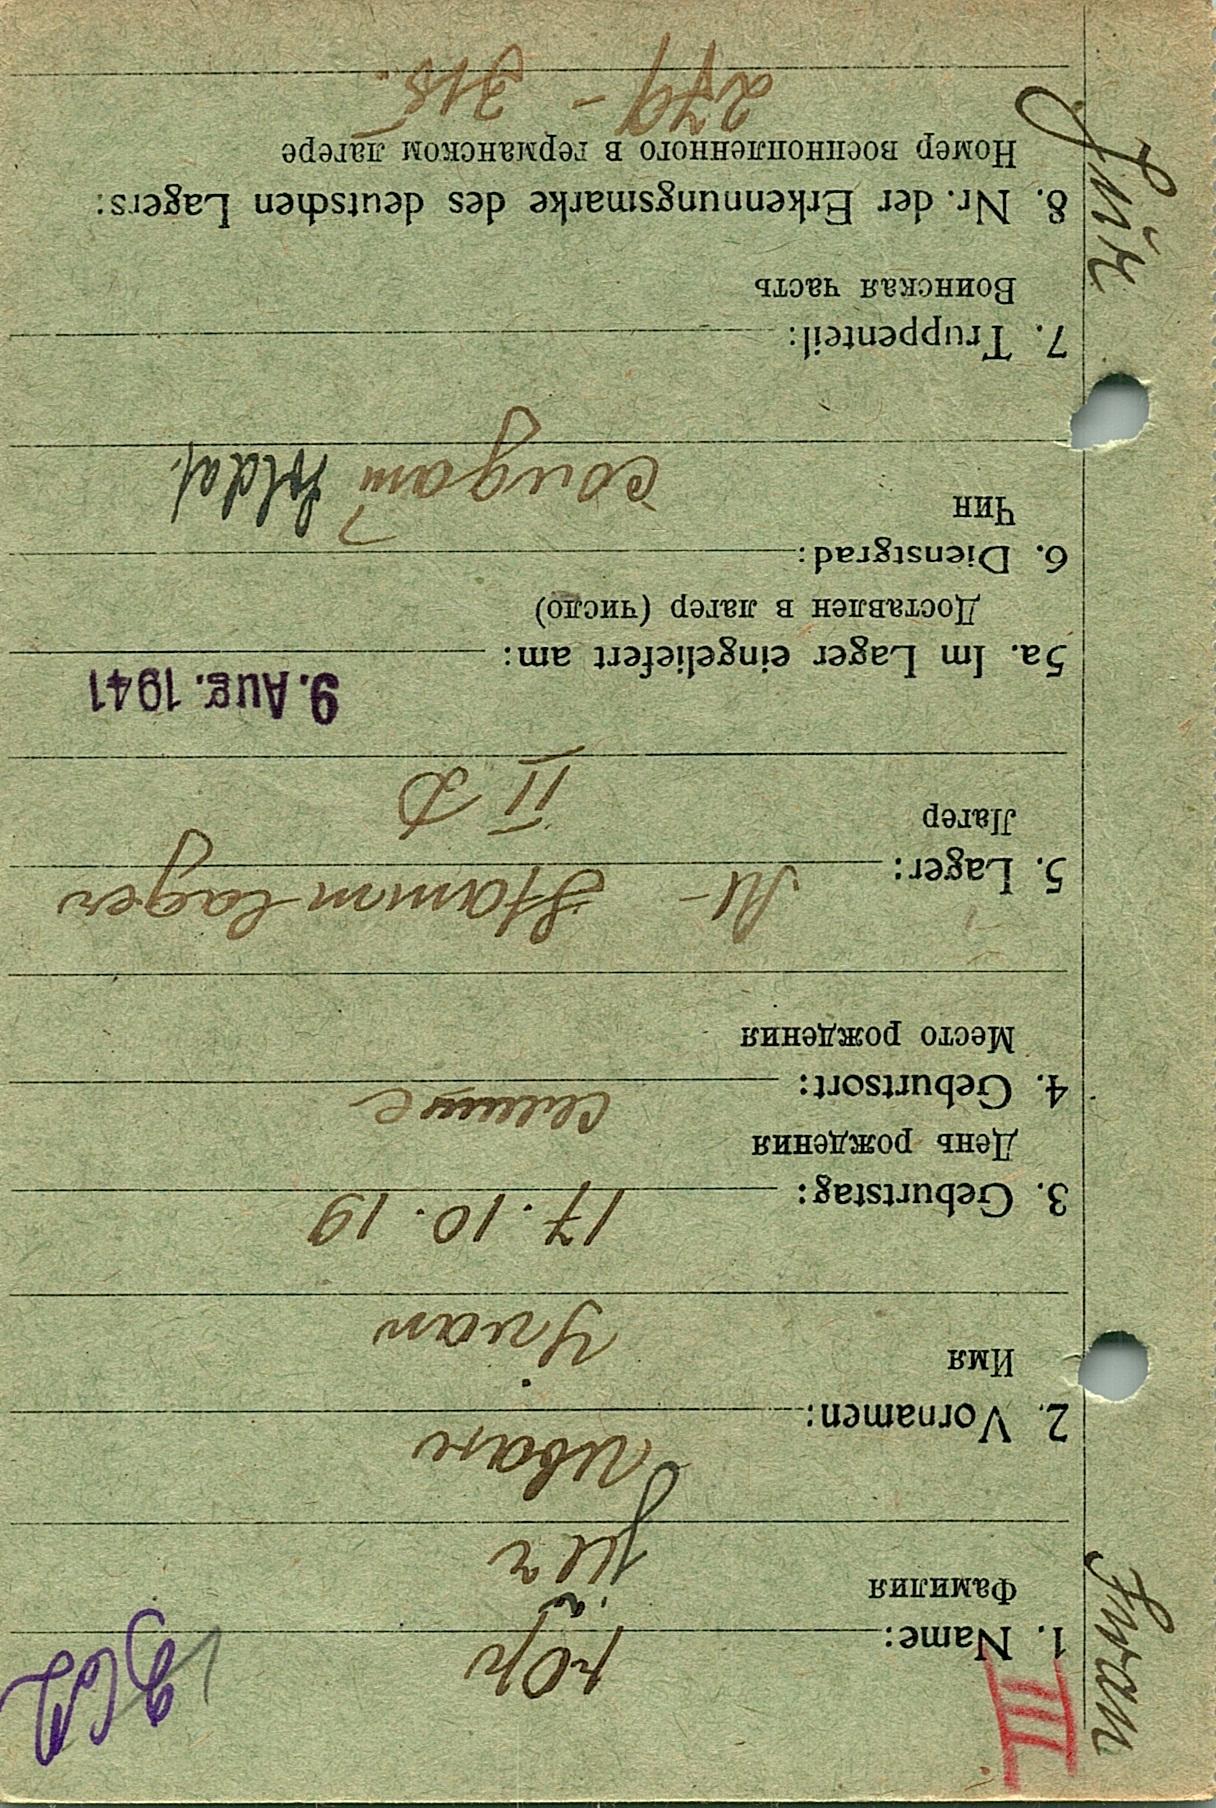 III
362
1. Name:
Юр
Фамилия
2. Vornamen:
Иван
Имя
Iwan
3. Geburtstag:
17. 10. 19
День рождения
4. Geburtsort:
Место рождения
5. Lager:
M - Stammlager
Лагер
II D
9. Aug. 1941
5a. Im Lager eingeliefert am:
Доставлен в лагер (число)
6. Dienstgrad:
Чин
солдат Soldat.
7. Truppenteil:
Воинская часть
8. Nr. der Erkennungsmarke des deutschen Lagers:
Номер военнопленного в германском лагере
279 - 315.
Iwan